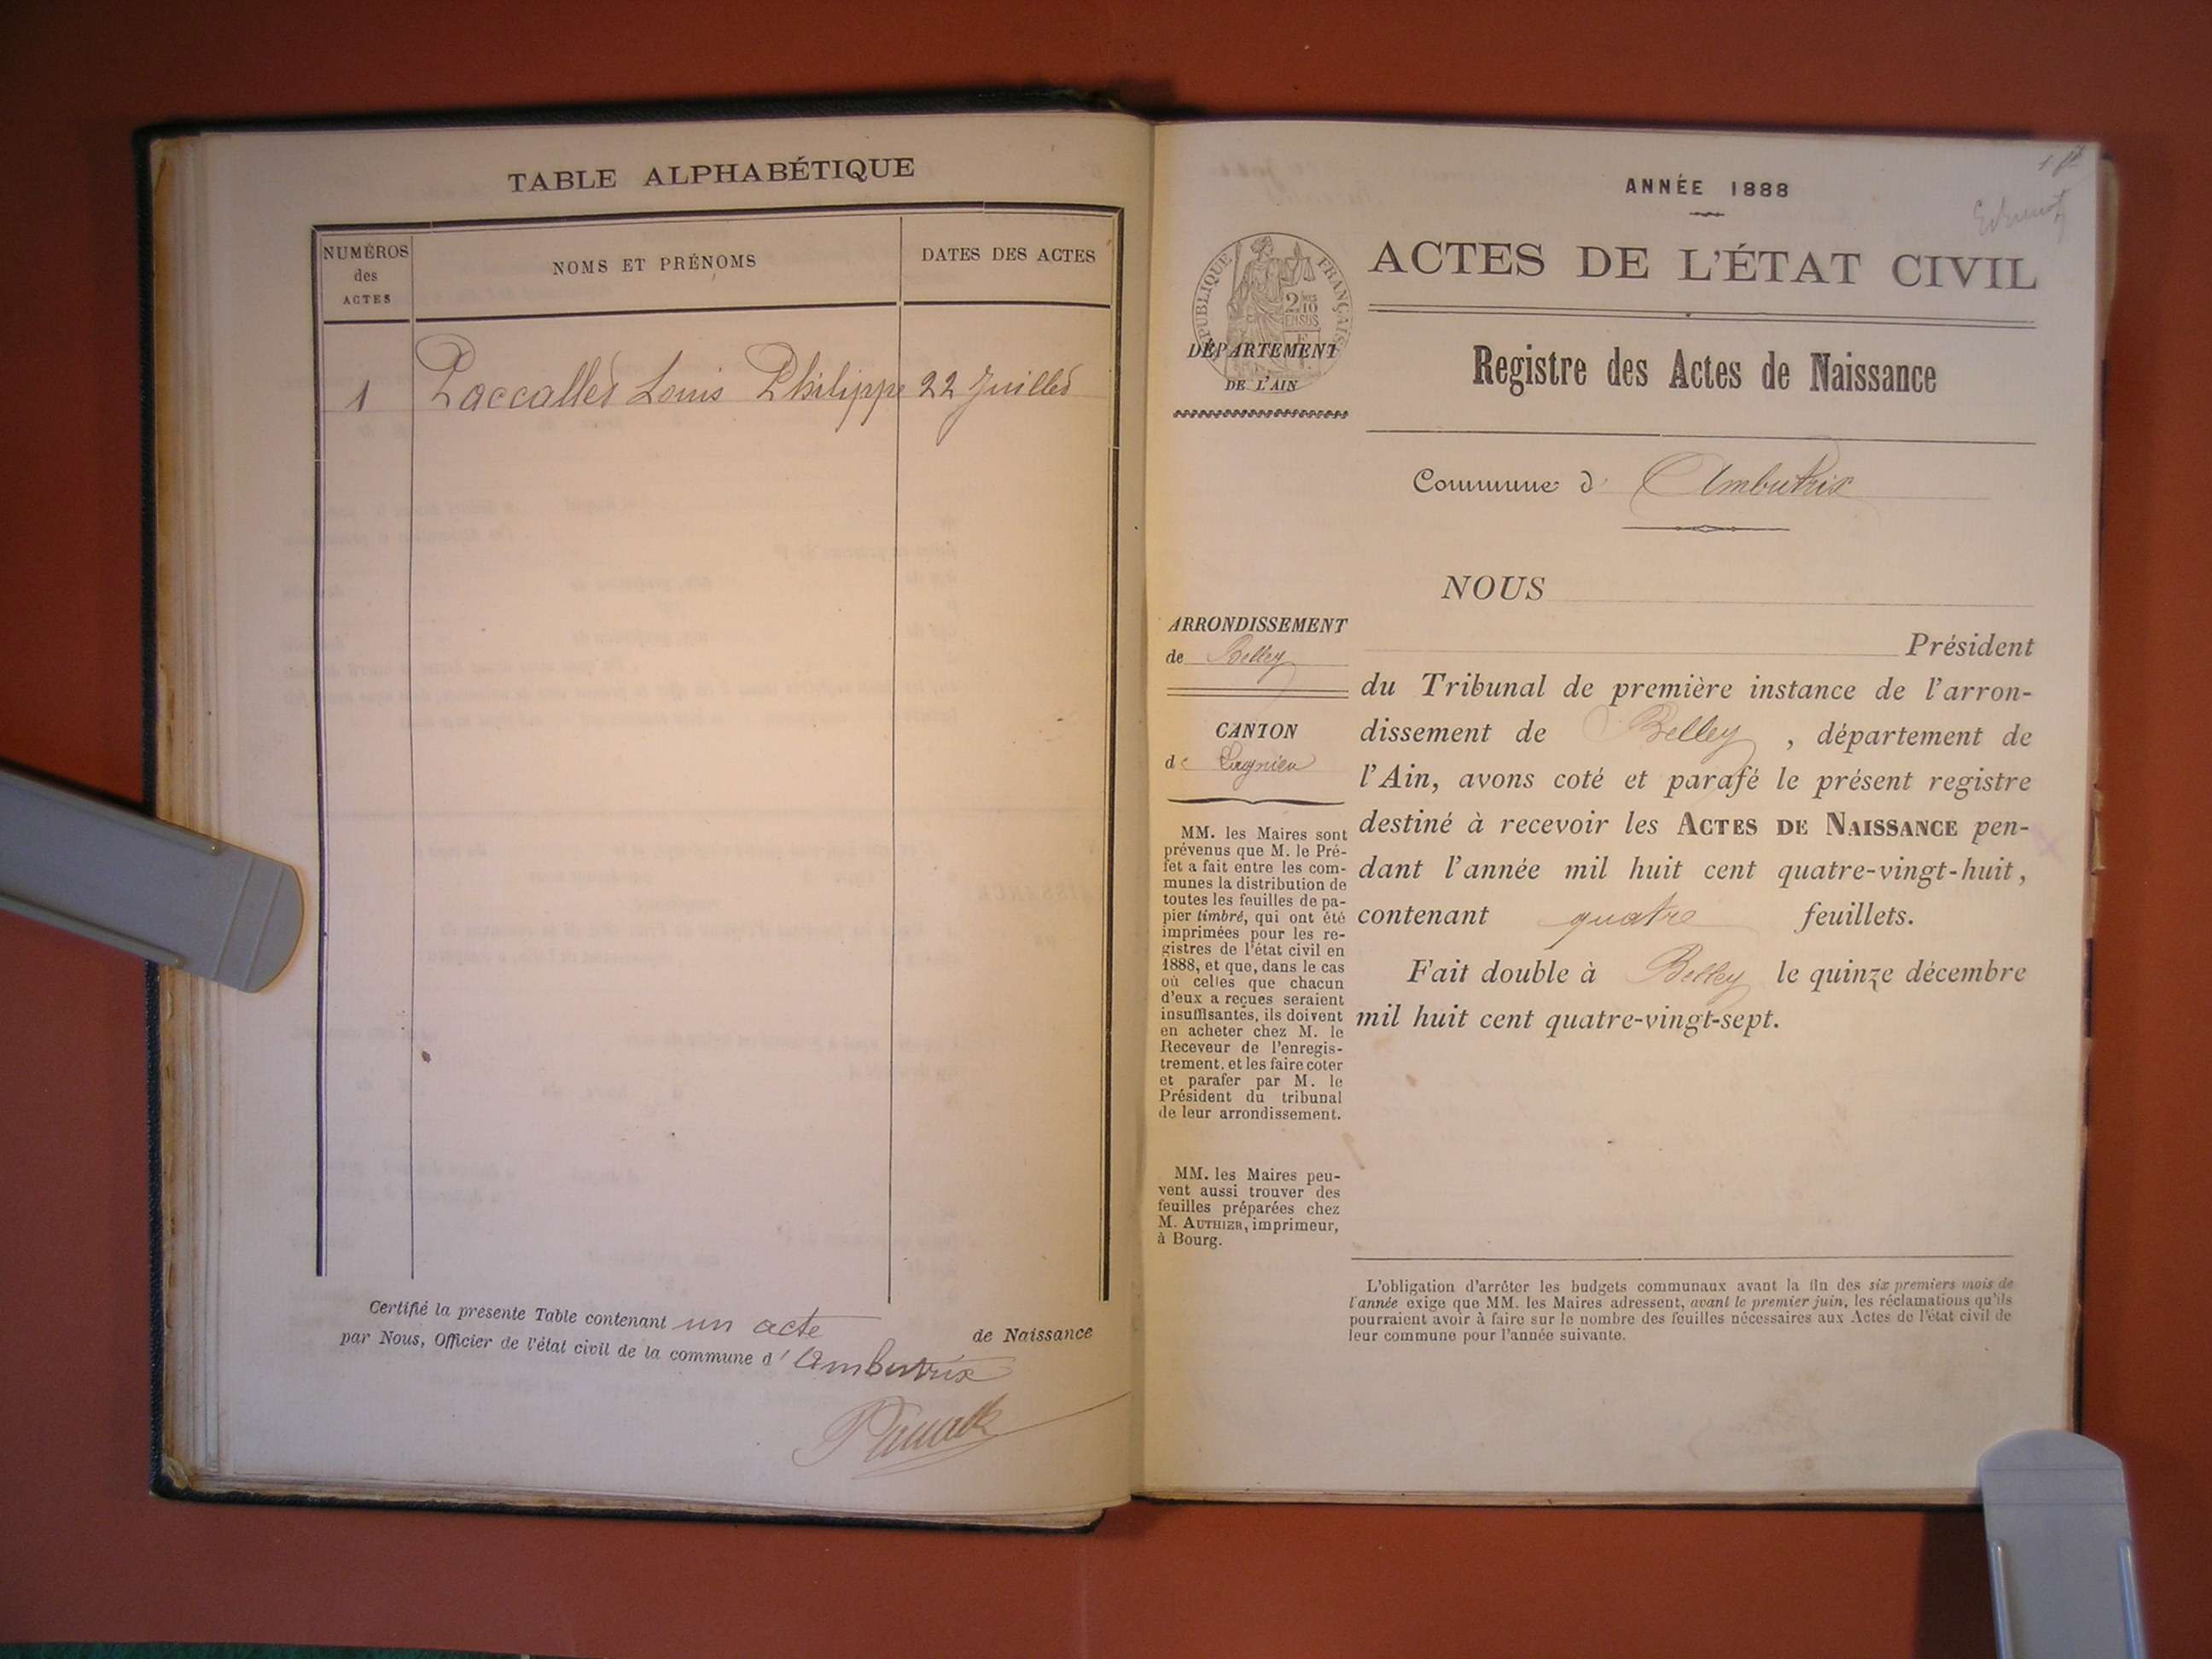 TABLE ALPHABÉTIQUE
NUMÉROS
des
ACTES
NOMS ET PRÉNOMS
DATES DES ACTES
1 Paccallet Louis Philippe 22 Juillet
Certifié la présente Table contenant un acte de Naissance
par Nous, Officier de l'état civil de la commune d' Ambutrix
ANNÉE 1888
RÉPUBLIQUE FRANÇAISE
DÉPARTEMENT
DE L'AIN
ACTES DE L'ÉTAT CIVIL
Registre des Actes de Naissance
Commune d' Ambutrix
ARRONDISSEMENT
de Belley
CANTON
de Lagnieu
MM. les Maires sont
prévenus que M. le Pré-
fet a fait entre les com-
munes la distribution de
toutes les feuilles de pa-
pier timbré, qui ont été
imprimées pour les re-
gistres de l'état civil en
1888, et que, dans le cas
où celles que chacun
d'eux a reçues seraient
insuffisantes, ils doivent
en acheter chez M. le
Receveur de l'enregis-
trement, et les faire coter
et parafer par M. le
Président du tribunal
de leur arrondissement.
MM. les Maires peu-
vent aussi trouver des
feuilles préparées chez
M. AUTHIER, imprimeur,
à Bourg.
NOUS
Président
du Tribunal de première instance de l'arron-
dissement de Belley, département de
l'Ain, avons coté et parafé le présent registre
destiné à recevoir les ACTES DE NAISSANCE pen-
dant l'année mil huit cent quatre-vingt-huit,
contenant quatre feuillets.
Fait double à Belley le quinze décembre
mil huit cent quatre-vingt-sept.
L'obligation d'arrêter les budgets communaux avant la fin des six premiers mois de
l'année exige que MM. les Maires adressent, avant le premier juin, les réclamations qu'ils
pourraient avoir à faire sur le nombre des feuilles nécessaires aux Actes de l'état civil de
leur commune pour l'année suivante.